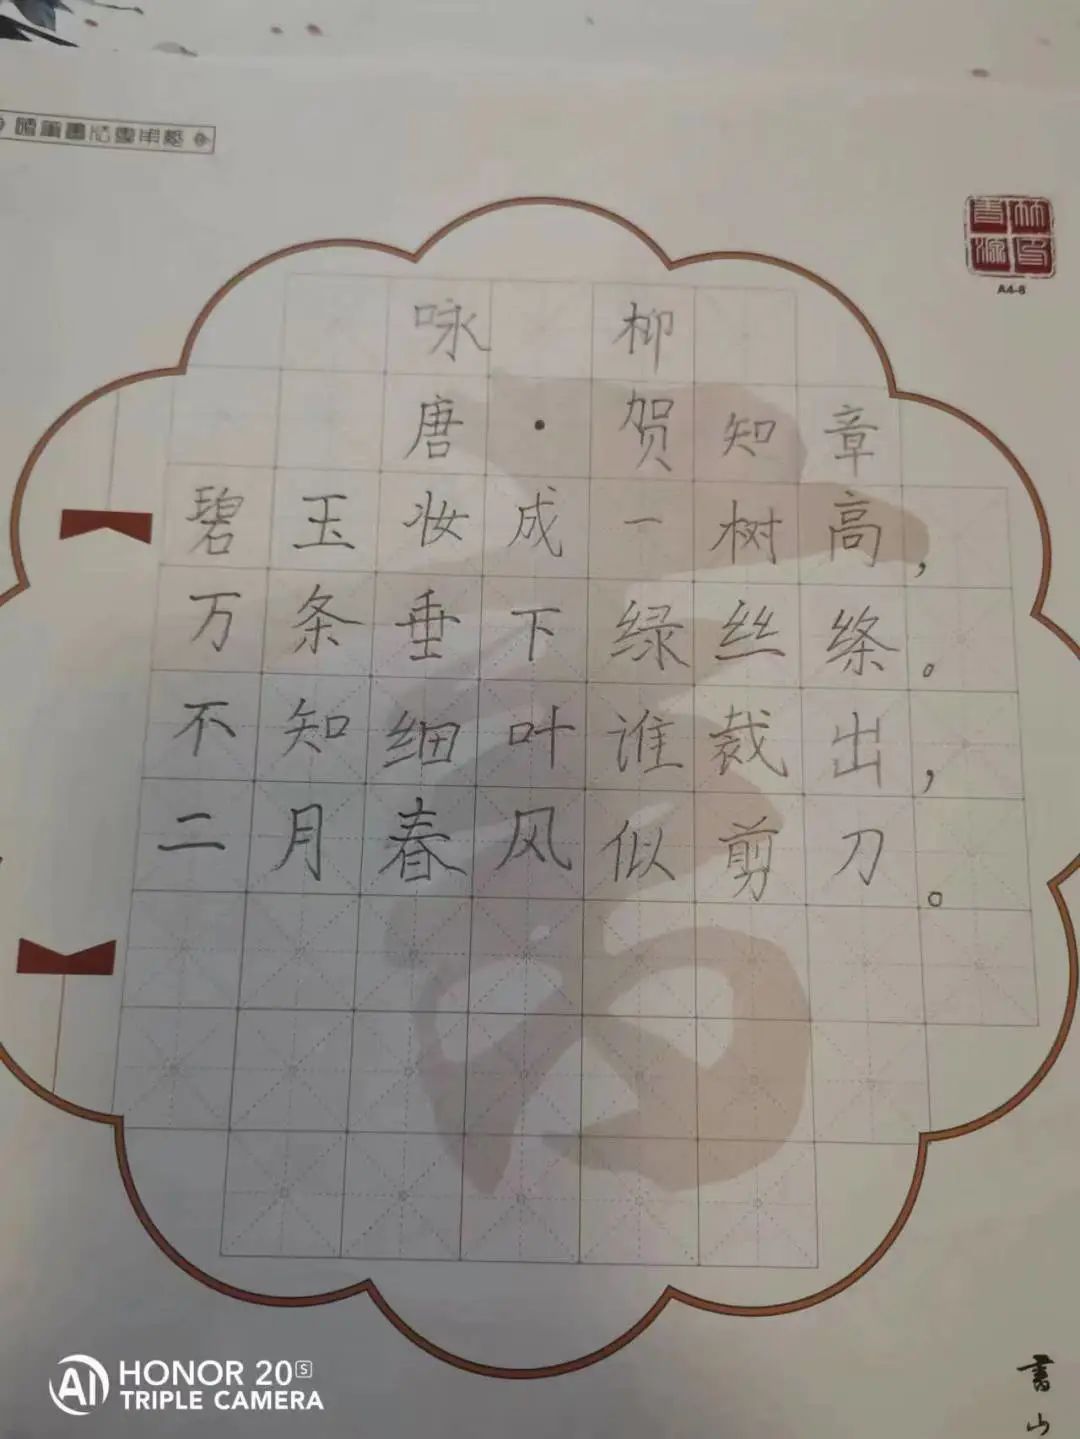 硬笔书法专用纸
A4-8
咏柳
唐·贺知章
碧玉妆成一树高，
万条垂下绿丝绦。
不知细叶谁裁出，
二月春风似剪刀。
書山
HONOR 20S
TRIPLE CAMERA